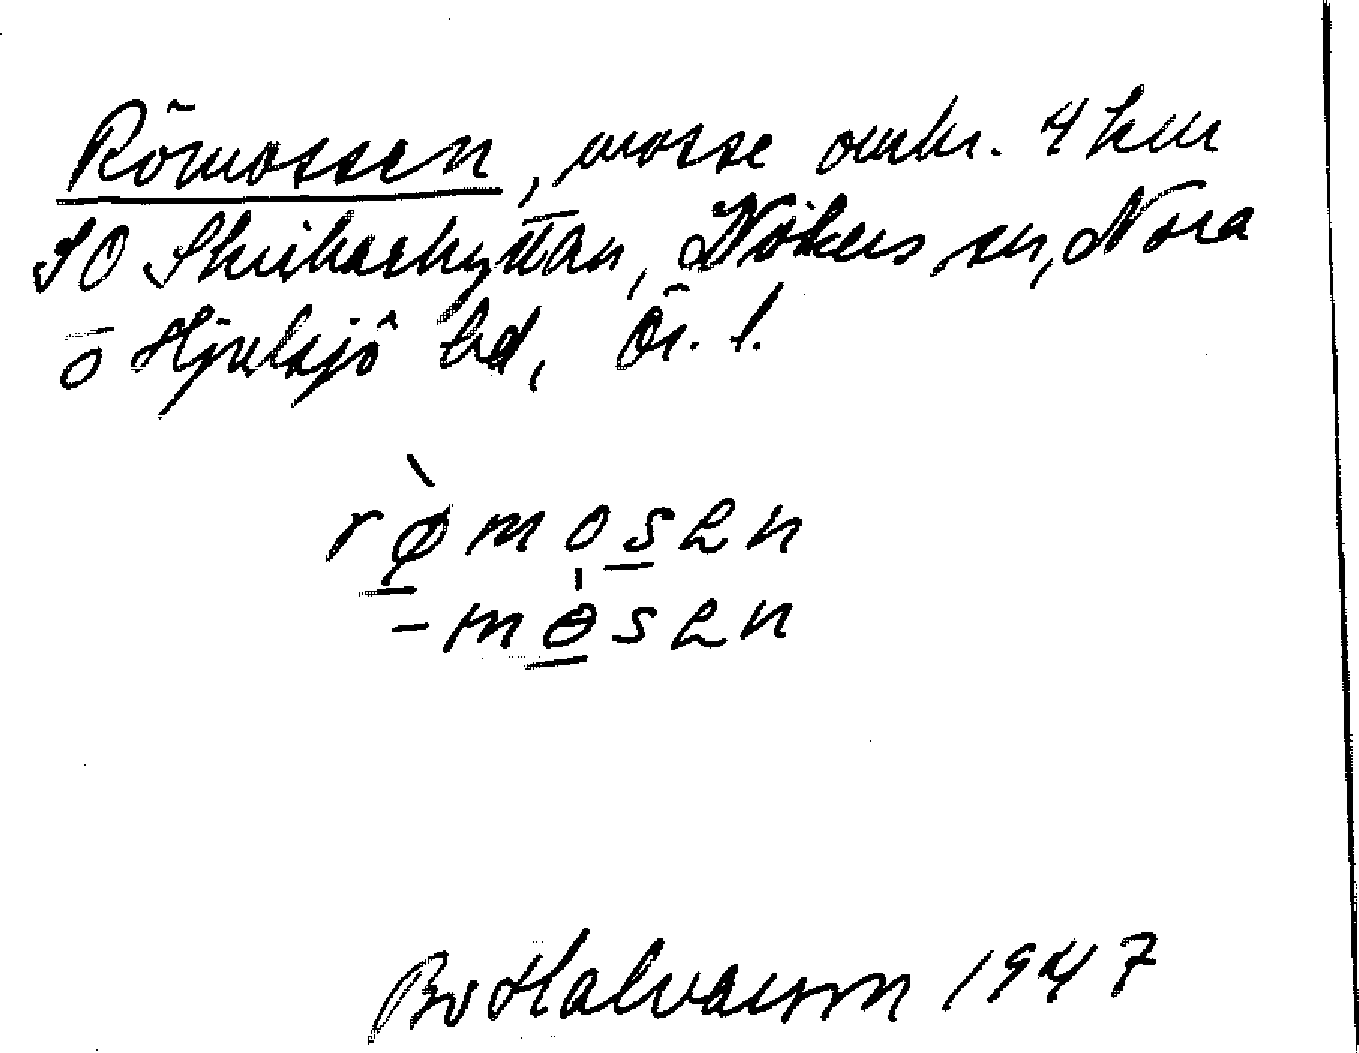 Römossen, mosse omkr. 4 km
SO Skrikarhyttan, Vikers sn, Nora
o Hjulsjö bd, Ör. l.
rø̀mosen
-mòsen
Bo Halvarson 1947